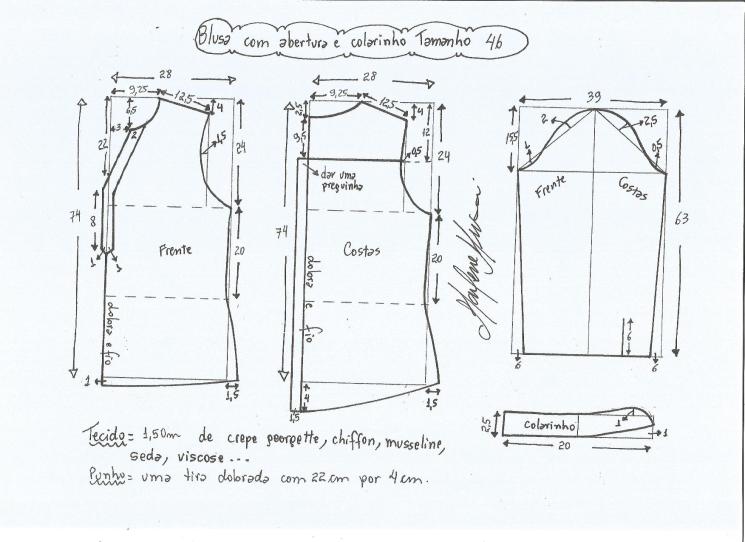 Blusa com abertura e colarinho Tamanho 46
28
9,25
12,5
4
6,5
3
2
1,5
22
24
74
8
1
1
Frente
20
dobra e fio
1
1,5
28
9,25
12,5
4
2,5
9,5
12
0,5
24
dar uma
preguinha
74
Costas
20
dobra e fio
4
1,5
1,5
Marlene Mukai
39
15,5
2
2,5
1
0,5
Frente
Costas
63
6
6
6
2,5
colarinho
1
1
20
Tecido = 1,50m de crepe georgette, chiffon, musseline,
seda, viscose ...
Punho = uma tira dobrada com 22 cm por 4 cm.